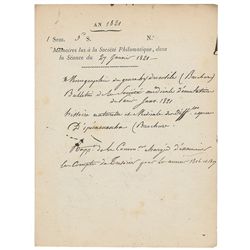 AN 1821
1 Sem. 3e S. N.°
Mémoires lus à la Société Philomatique, dans
la Séance du 27 Janvier 1821.
Monographie du genre (Brochure)
Bulletin de la Société médicale d'émulation
de Janv. 1821
histoire naturelle et Médicale des
D'ipécacuanha (Brochure.)
Rapp. de la Comm.on chargée d'examiner
les Comptes du Trésorier pour les années 1816 et